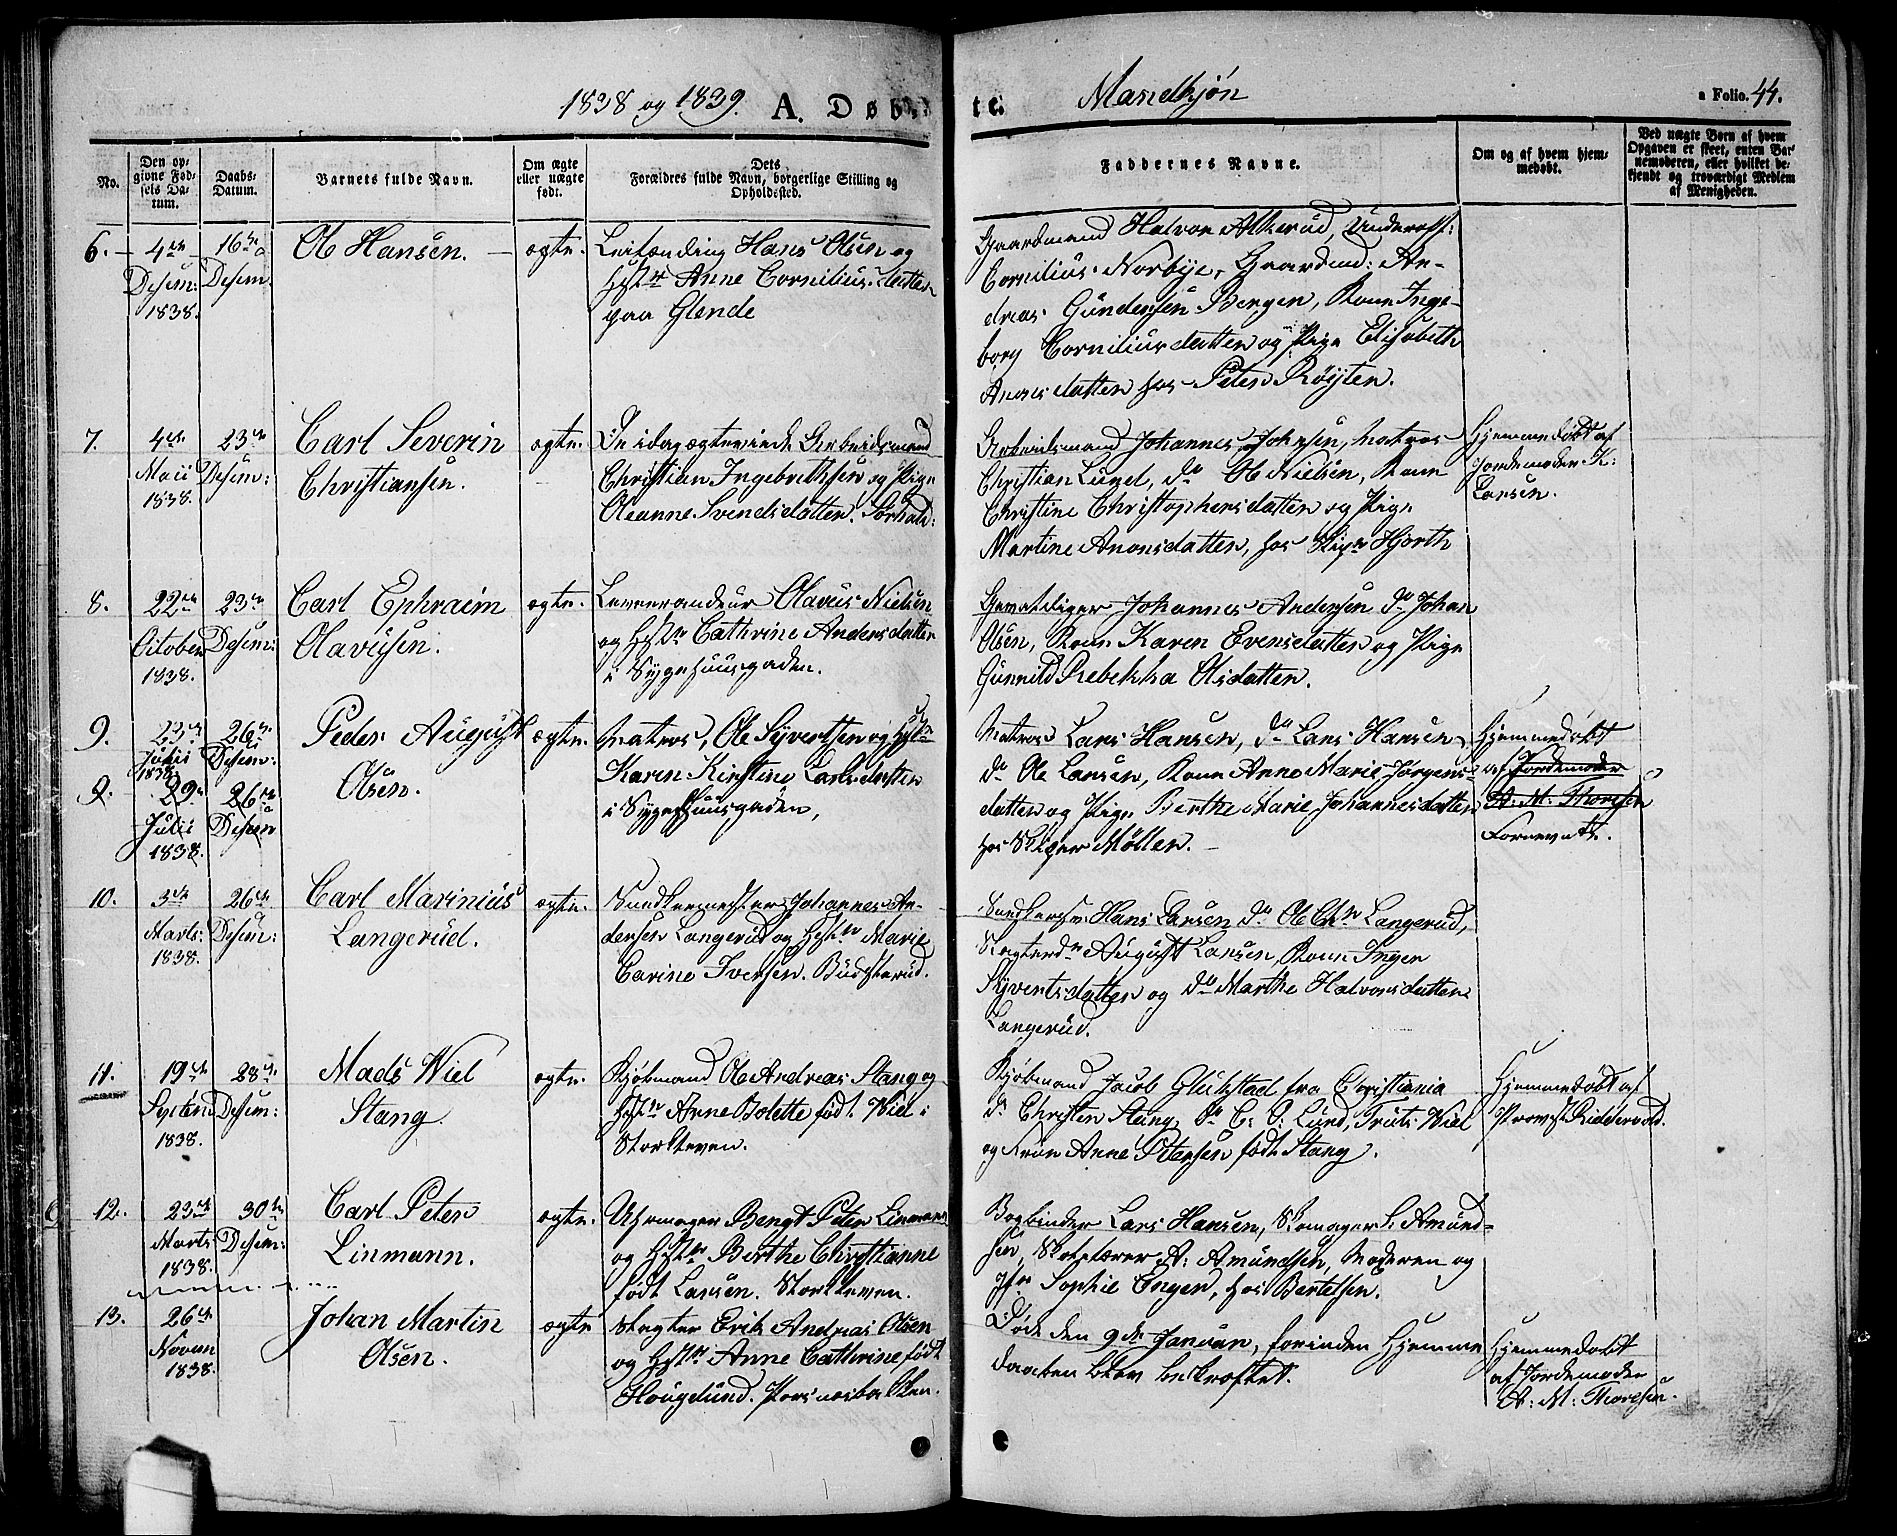 1838 og 1839. A. Døb
te. Mandkjön a Folio. 44.
No.
Den op-
givne Fød-
sels Da-
tum.
Daabs-
Datum.
Barnets fulde Navn.
Om ægte
eller uægte
født.
Dets
Forældres fulde Navn, borgerlige Stilling og
Opholdssted.
Faddernes Navne.
Om og af hvem hjem-
medøbt.
Ved uægte Børn af hvem
Opgaven er skeet, enten Bar-
nemoderen, eller hvilket be-
kjendt og troværdigt Medlem
af Menigheden.
6. 4de
Desem:
1838.
16de
Desem.
Ole Hansen.
ægte.
Hans Olsen og
Hst Anne Cornilius datter
paa Glende
Gaardmand Halvor Alkerud,
Cornilius Norbye, Gaardmd: An-
dreas Gundersen Bergen, Kone Inge-
borg Corniliusdatter og Pige Elisabeth
datter hos Peter Röyten.
7. 4de
Maii
1838.
23de
Desem:
Carl Severin
Christiansen.
ægte.
De idag ægteviede Arbeidsmand
Christian Ingebrethsen og Pige
Oleanne Svendsdatter.
Arbeidsmand Johannes Johnsen, Matros
Christian Lund, do Ole Nielsen, Kone
Christine Christophersdatter og Pige
Martine datter, hos Hjorth
Hjemmedöbt af
Jordemoder K:
Larsen.
8. 22de
October
1838.
23de
Desem:
Carl Ephraim
Olavesen.
ægte.
Leverandeur Olaves Nielsen
og Hst Cathrine Andersdatter
i Sygehuusgaden.
Johannes Andersen do Johan
Olsen, Kone Karen Evensdatter og Pige
Gunnild Rebekka Olsdatter.
9. 23de
Julii
1838
26de
Desem:
Peder August
Olsen.
ægte.
Matros, Ole Syvertsen og Hst
Karen Kirstine Larsdatter
i Sygehuusgaden,
Matros Lars Hansen, do Lars Hansen,
do Ole Larsen, Kone Anne Marie Jörgens-
datter og Pige Berthe Marie Johannesdatter
hos Möller.
Hjemmedöbt
af Jordemoder
A: M: Thoresen
9. 29.
Julii
1838.
26de
Desem
10. 3de
Marts
1838.
26de
Desem:
Carl Marinius
Langerud.
ægte.
Snedkermester Johannes An-
dersen Langerud og Hst Marie
Carine Iversen.
Hans Larsen do Ole Chr Langerud,
August Larsen, Kone Inger
Syvertsdatter og do Marthe Halvorsdatter
Langerud.
11. 19de
Septem
1838.
28de
Desem:
Mads Wiel
Stang.
ægte.
Kjöbmand Ole Andreas Stang og
Hst Anne Bolette födt Wiel i
Storkleven.
Kjöbmand Jacob Glükstad fra Christiania
do Christen Stang, do C: O: Lund, Truls Wiel
og Frue Anne Petersen födt Stang.
Hjemmedöbt af
Provst Riddervold.
12. 23de
Marts
1838.
30de
Desem:
Carl Peter
Linmann.
ægte.
Uhrmager Bengt Peter Linmann
og Hst Berthe Christianne
födt Larsen. Storkleven.
Bogbinder Lars Hansen, Skomager L. Amund-
sen, Skolelærer A: Amundsen, Moderen og
Jfr Sophie Enger, hos Bertelsen.
13. 26de
Novem
1838.
Johan Martin
Olsen.
ægte
Slagter Erik Andreas Olsen
og Hst Anne Cathrine födt
Hougelund.
Döde den 9de Januar, forinden Hjemme
daaben blev bekræftet.
Hjemmedöbt
af Jordemoder
A: M: Thoresen.